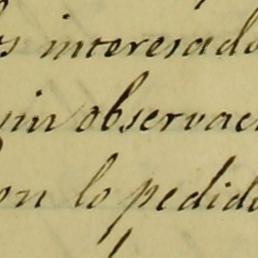 os interesado
sin observaci
on lo pedido